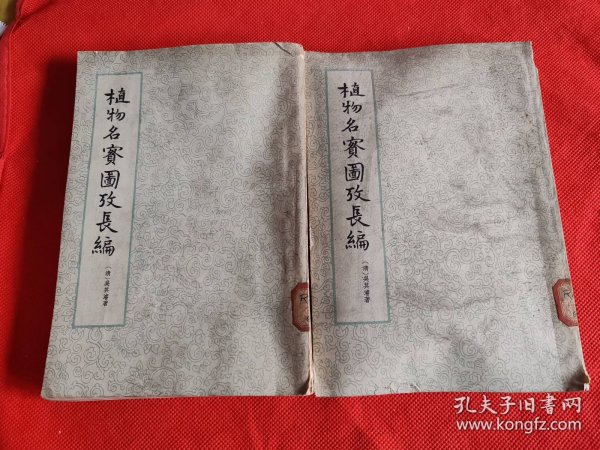 植物名實圖攷長編
（清）吳其濬著
植物名實圖攷長編
（清）吳其濬著
孔夫子旧书网
www.kongfz.com